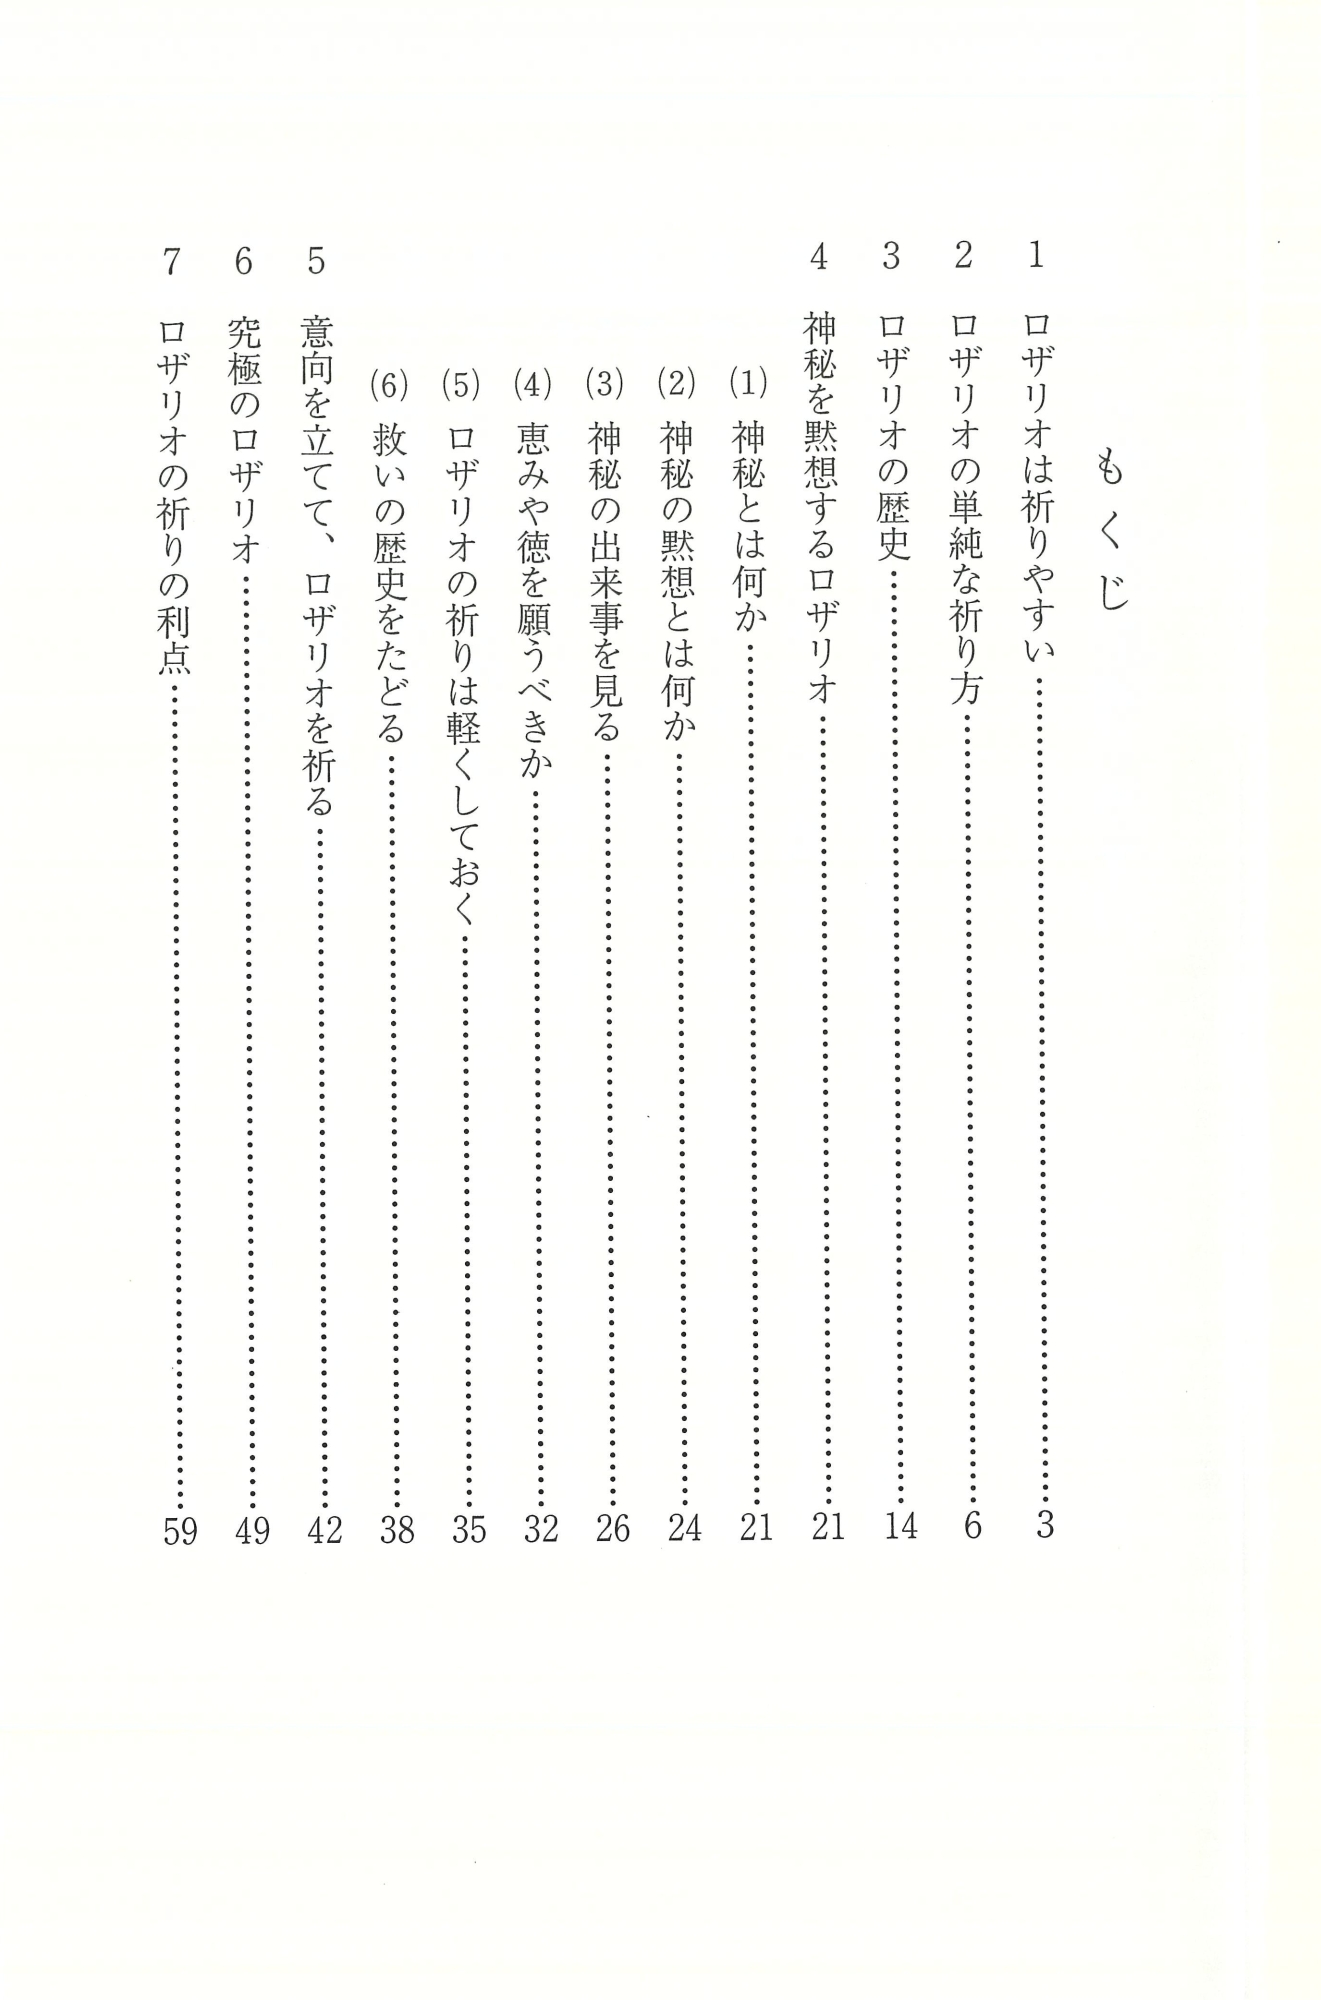 もくじ
1 ロザリオは祈りやすい……………3
2 ロザリオの単純な祈り方……………6
3 ロザリオの歴史……………14
4 神秘を黙想するロザリオ……………21
(1) 神秘とは何か……………21
(2) 神秘の黙想とは何か……………24
(3) 神秘の出来事を見る……………26
(4) 恵みや徳を願うべきか……………32
(5) ロザリオの祈りは軽くしておく……………35
(6) 救いの歴史をたどる……………38
5 意向を立てて、ロザリオを祈る……………42
6 究極のロザリオ……………49
7 ロザリオの祈りの利点……………59